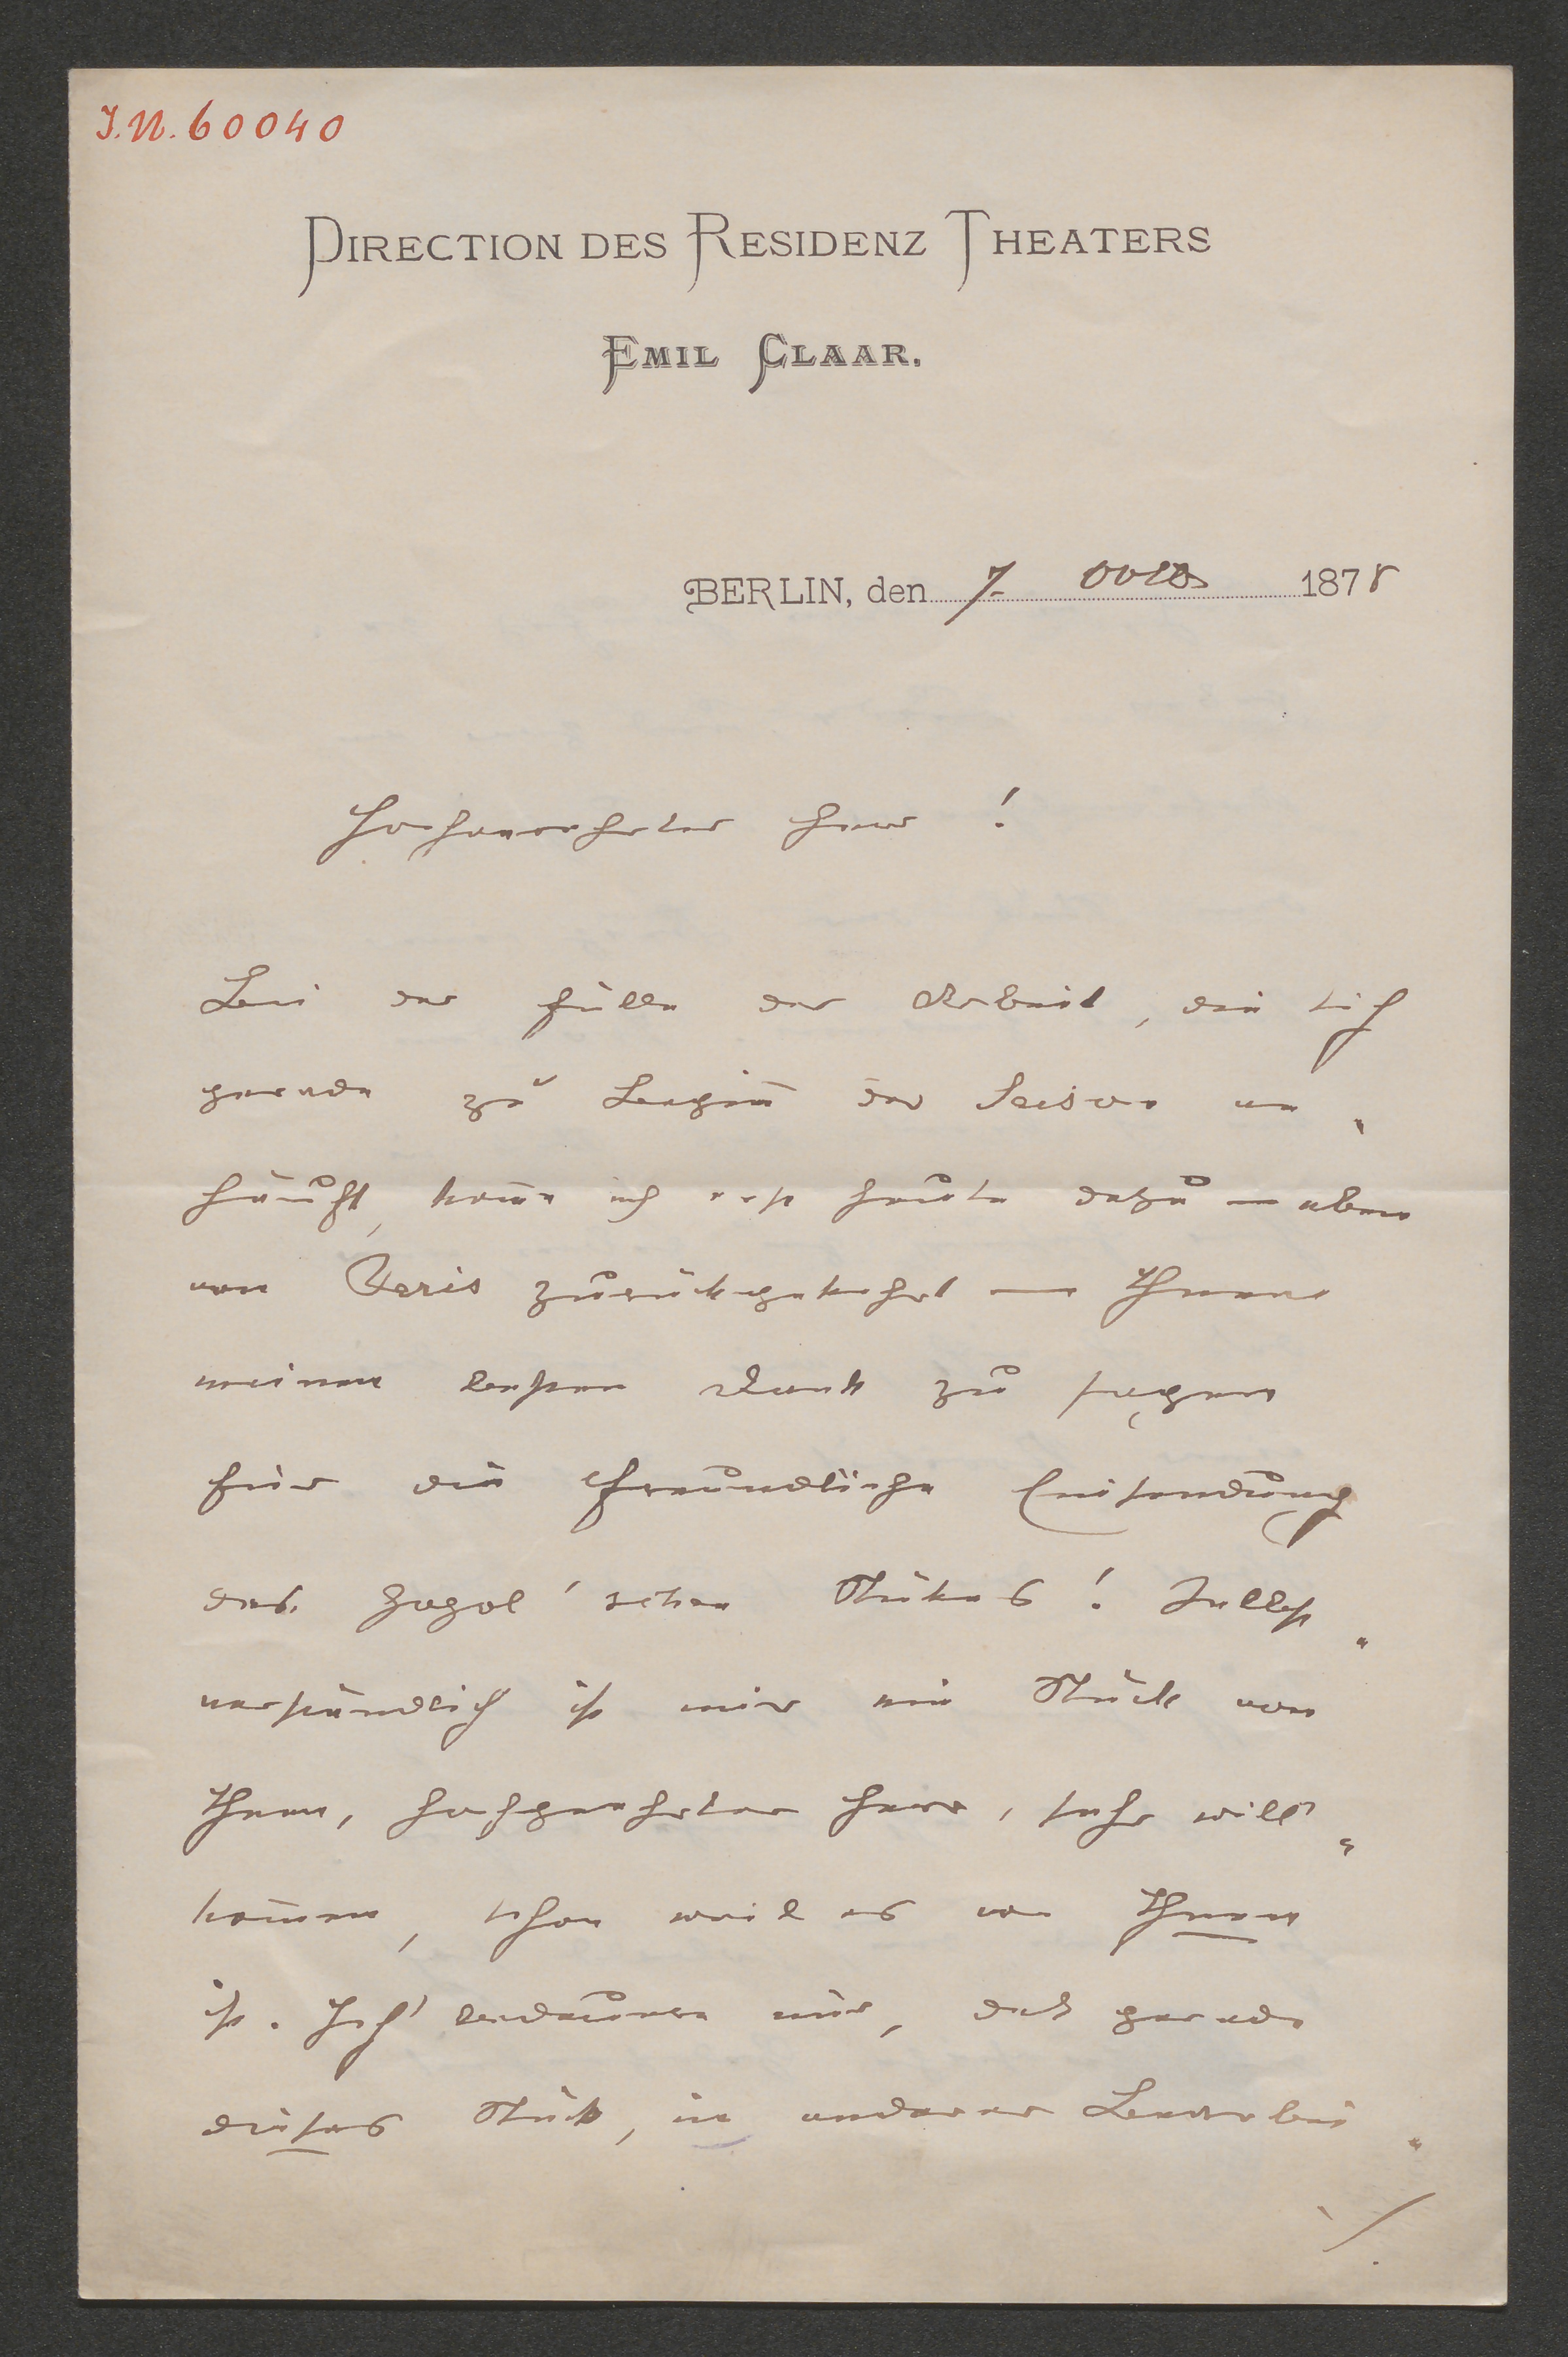 J.N. 60040
DIRECTION DES RESIDENZ THEATERS
EMIL CLAAR.
BERLIN, den 7. 1878
Hochverehrter Herr !
Bei der Fülle der Arbeit, die sich
gerade zu Beginn der Saison an„
häuft, kom̄e ich erst heute dazu — eben
von Paris zurückgekehrt — Ihnen
meinen besten Dank zu sagen
für die freundliche Einsendung
des Gogol'schen Stückes ! Selbst„
verständlich ist mir ein Stück von
Ihnen, hochgeehrter Herr, sehr will„
kom̄en, schon weil es von Ihnen
ist. Ich bedauere nur, daß gerade
dieses Stück, in anderer Bearbei„
/.